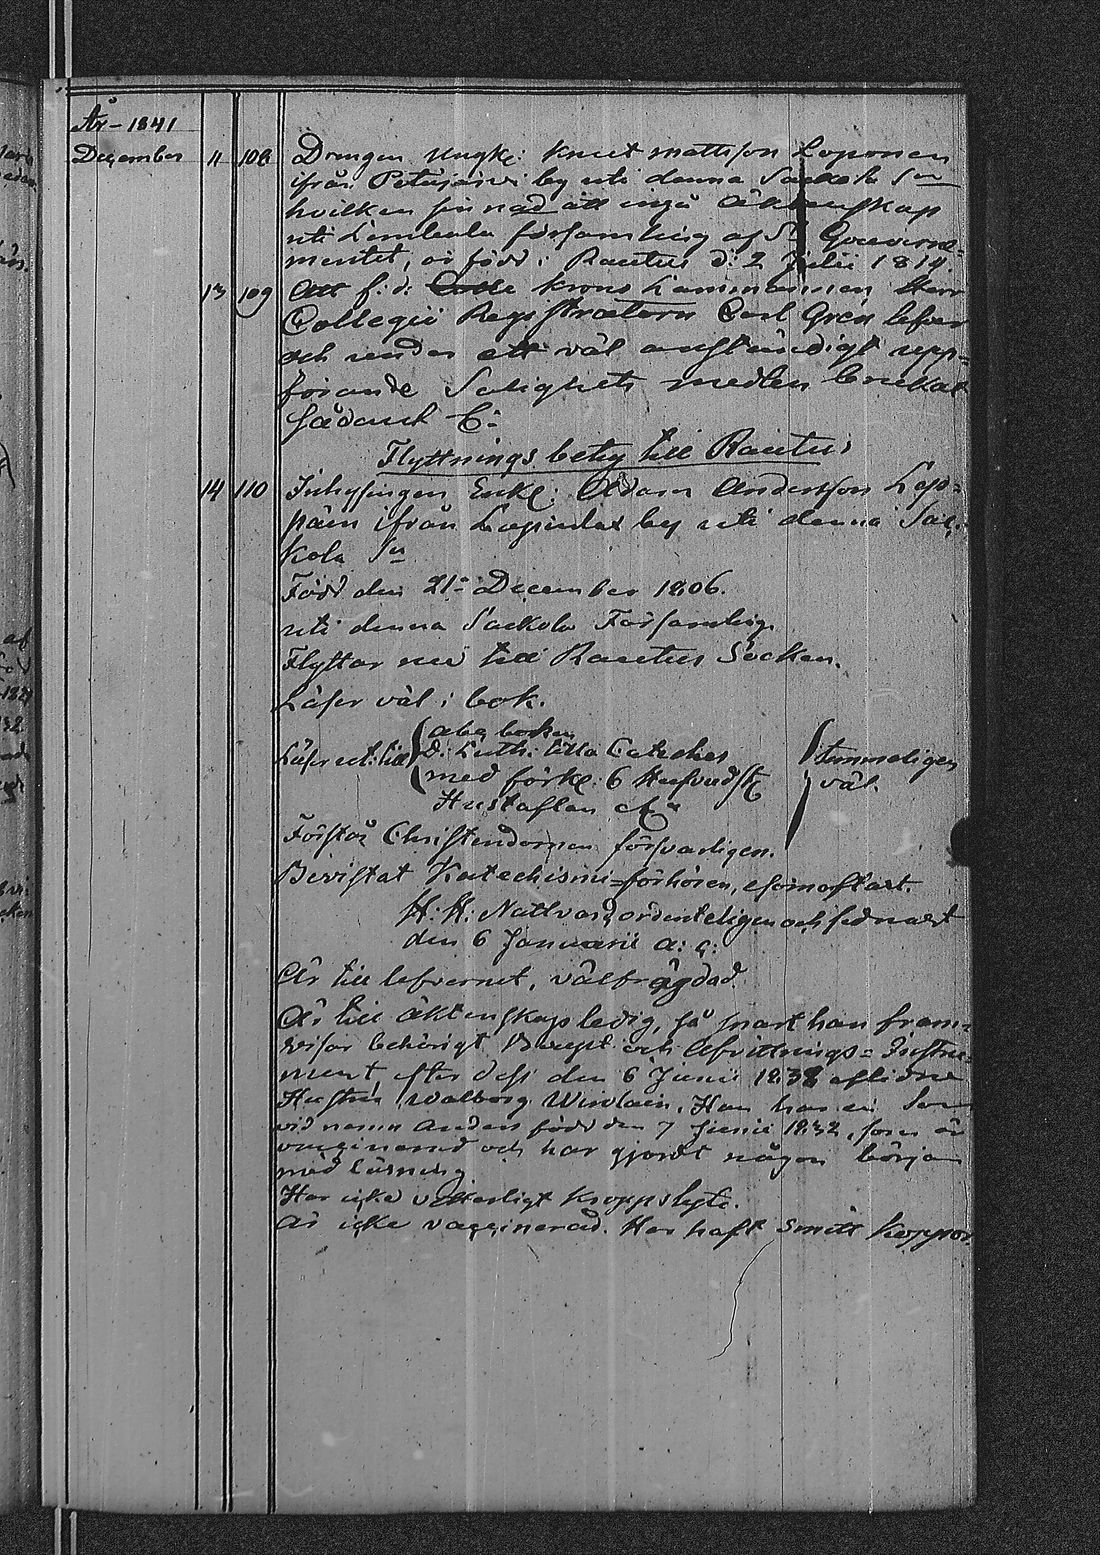 År - 1841
December 11 108 Drängen Ungk: Knut Mattsson Loponen
ifrån Petäjärvi by uti denna Sackola Sn
hvilken sinnad att ingå Äktenskap
uti Lembala församling af St Gouverne-
mentet, är född i Rautus d: 2 Julii 1814.
13 109 Att f. d: Krono Länsmannen Herr
Collegii Registratorn Carl Gren lefver
och under ett väl anständigt upp-
förande Salighets medlen brukat
sådant &:
Flyttnings betyg till Rautus
14 110 Inhysingen Enkl: Adam Andersson Lep-
päin ifrån Lapinlax by uti denna Sac-
kola Sn
Född den 21 December 1806.
uti denna Sackola Församling
Flyttar nu till Rautus Socken.
Läser väl i bok.
Läser ut: till aba boken
D: Luth: lilla Cateches
med förkl: 6 Hufvud st
Hustaflan &
temmeligen
väl.
Förstår Christendomen försvarligen.
Bivistat Katechismi-förhören, esomoftast.
H. H: Nattvard ordenteligen och sednast
den 6 Januarii a: c:
Är till lefvernet, välfrägdad.
Är till äktenskap ledig, så snart han fram-
visar behörigt Bevist och Afvittnings-Instru-
ment, efter dess den 6 Junii 1838 aflidne
Hustru Walborg Wirolain. Han har en Son
vid namn Anders född den 7 Junii 1832, som är
vaccinerad och har gjordt någon början
med läsning
Har icke vetterligt kroppslyte.
Är icke vaccinerad. Har haft Smitt koppor.